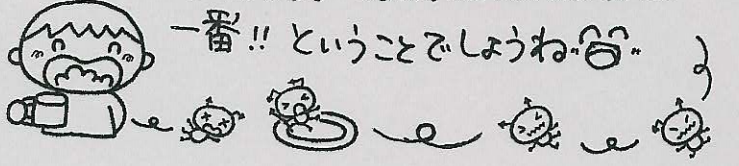 一番!! ということでしょうね